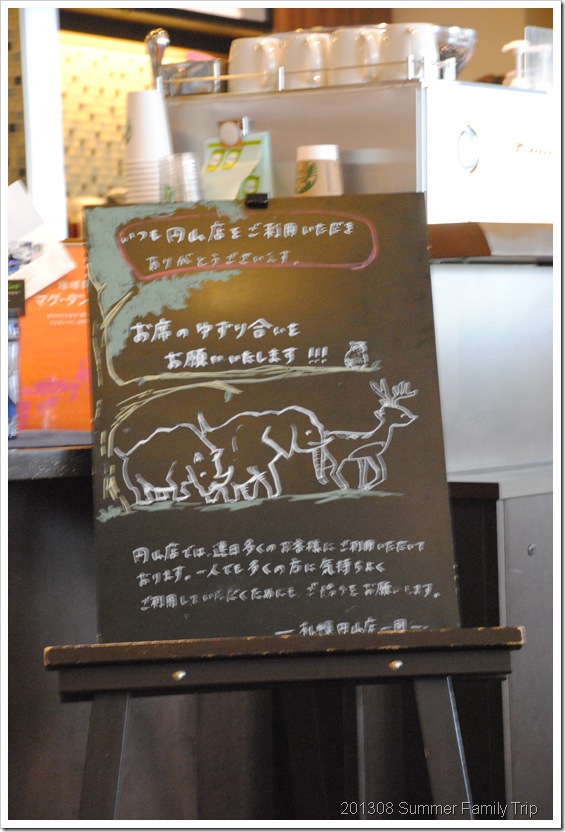 いつも円山店をご利用いただき
ありがとうございます。
お席のゆずり合いを
お願いいたします!!!
円山店では、連日多くのお客様にご利用いただいて
おります。一人でも多くの方に気持ちよく
ご利用していただくためにも、ご協力をお願いします。
ー 札幌円山店一同 ー
マグ・タン
201308 Summer Family Trip